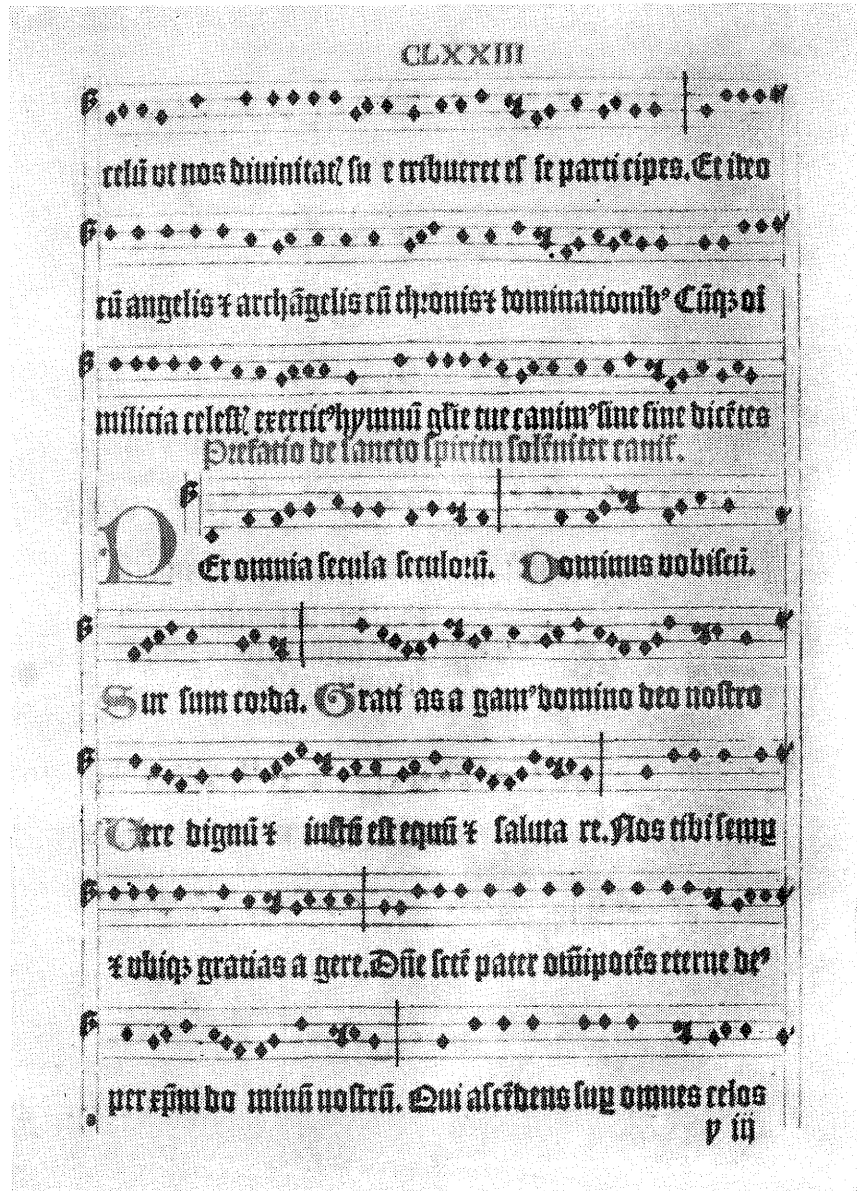 CLXXIII
celū vt nos diuinitatꝭ su e tribueret eſ ſe parti cipes. Et ideo
cū angelis ⁊ archāgelis cū thꝛonis ⁊ dominationibꝰ Cūqꝫ oī
milicia celeſtꝭ exercitꝰ hymnū glīe tue canimꝰ ſine fine dicētes
Prefatio de ſancto ſpiritu ſolēniter canit̄.
PEr omnia ſecula ſeculoꝛū. Dominus vobiſcū.
Sur ſum coꝛda. Grati as a gamꝰ domino deo noſtro
Uere dignū ⁊ iuſtū eſt equū ⁊ ſaluta re. Nos tibi ſemꝑ
⁊ vbiqꝫ gratias a gere. Dñe ſctē pater oīnipotēs eterne deꝰ
per xp̄m do minū noſtrū. Qui aſcēdens ſuꝑ omnes celos
y iij